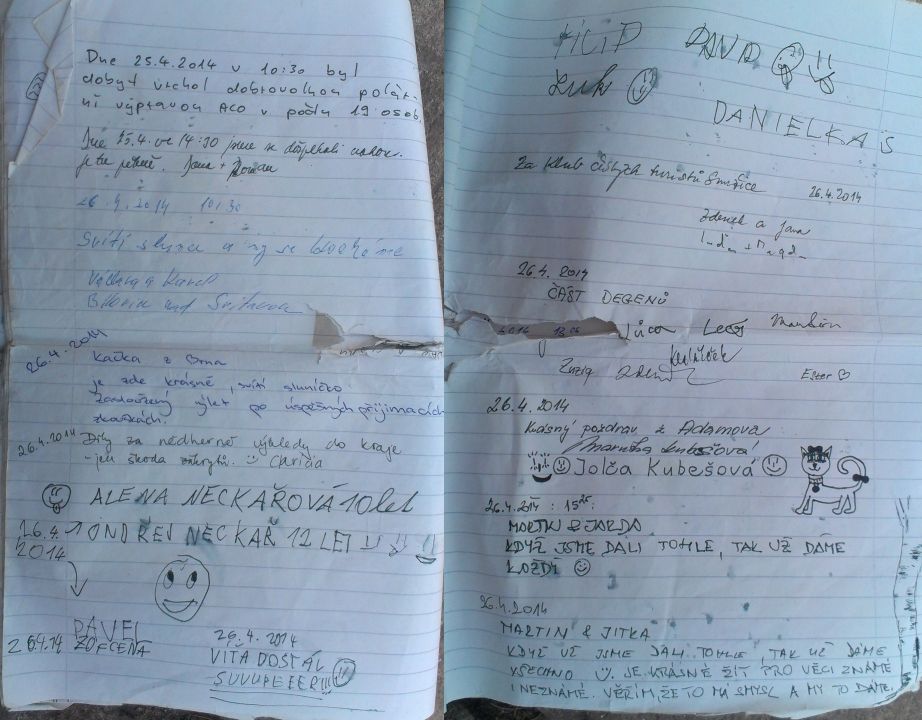 Dne 25.4.2014 v 10:30 byl
dobyt vrchol dobrovolnou polár-
ní výpravou ACO v počtu 19 osob.
Dne 25.4. ve 14:30 jsme se došplhali nahoru.
je tu pěkně. Jana + Roman
26.4.2014 10:30
Svítí slunce a my se kocháme
Václav a Karel
Bílovice nad Svitavou
26.4.2014
Kačka z Brna
je zde krásně, svítí sluníčko.
Zasloužený výlet po úspěšných přijímacích
zkouškách.
26.4.2014 Díky za nádherné výhledy do kraje
- jen škoda
ALENA NECKAŘOVÁ 10 let
26.4. ONDŘEJ NECKAŘ 12 LET
2014
PAVEL
26.4.14
26.4.2014
VÍTA DOSTÁL
SUUUPEEER!!!
FILIP DAVID
Luk
DANIELKA S
Za Klub českých turistů 26.4.2014
Zdeněk a Jana
26.4.2014
ČÁST DEGENŮ
Ester
26.4.2014
Krásný pozdrav z Adamova
Jolča Kubešová
26.4.2014 : 15
MARTIN & JARDA
KDYŽ JSME DALI TOHLE, TAK UŽ DÁME
26.4.2014
MARTIN & JITKA
KDYŽ UŽ JSME DALI TOHLE, TAK UŽ DÁME
VŠECHNO JE KRÁSNÉ ŽÍT PRO VĚCI ZNÁMÉ
I NEZNÁMÉ. VĚŘÍM, ŽE TO MÁ SMYSL A MY TO DÁME.